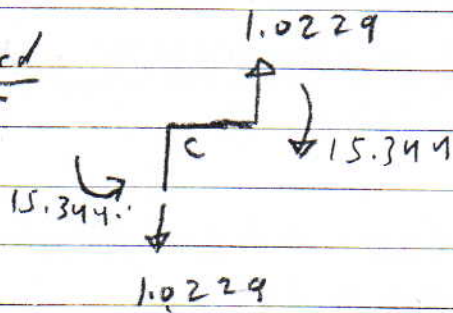 1.0229
ed
C
15.344
15.344..
1.0229